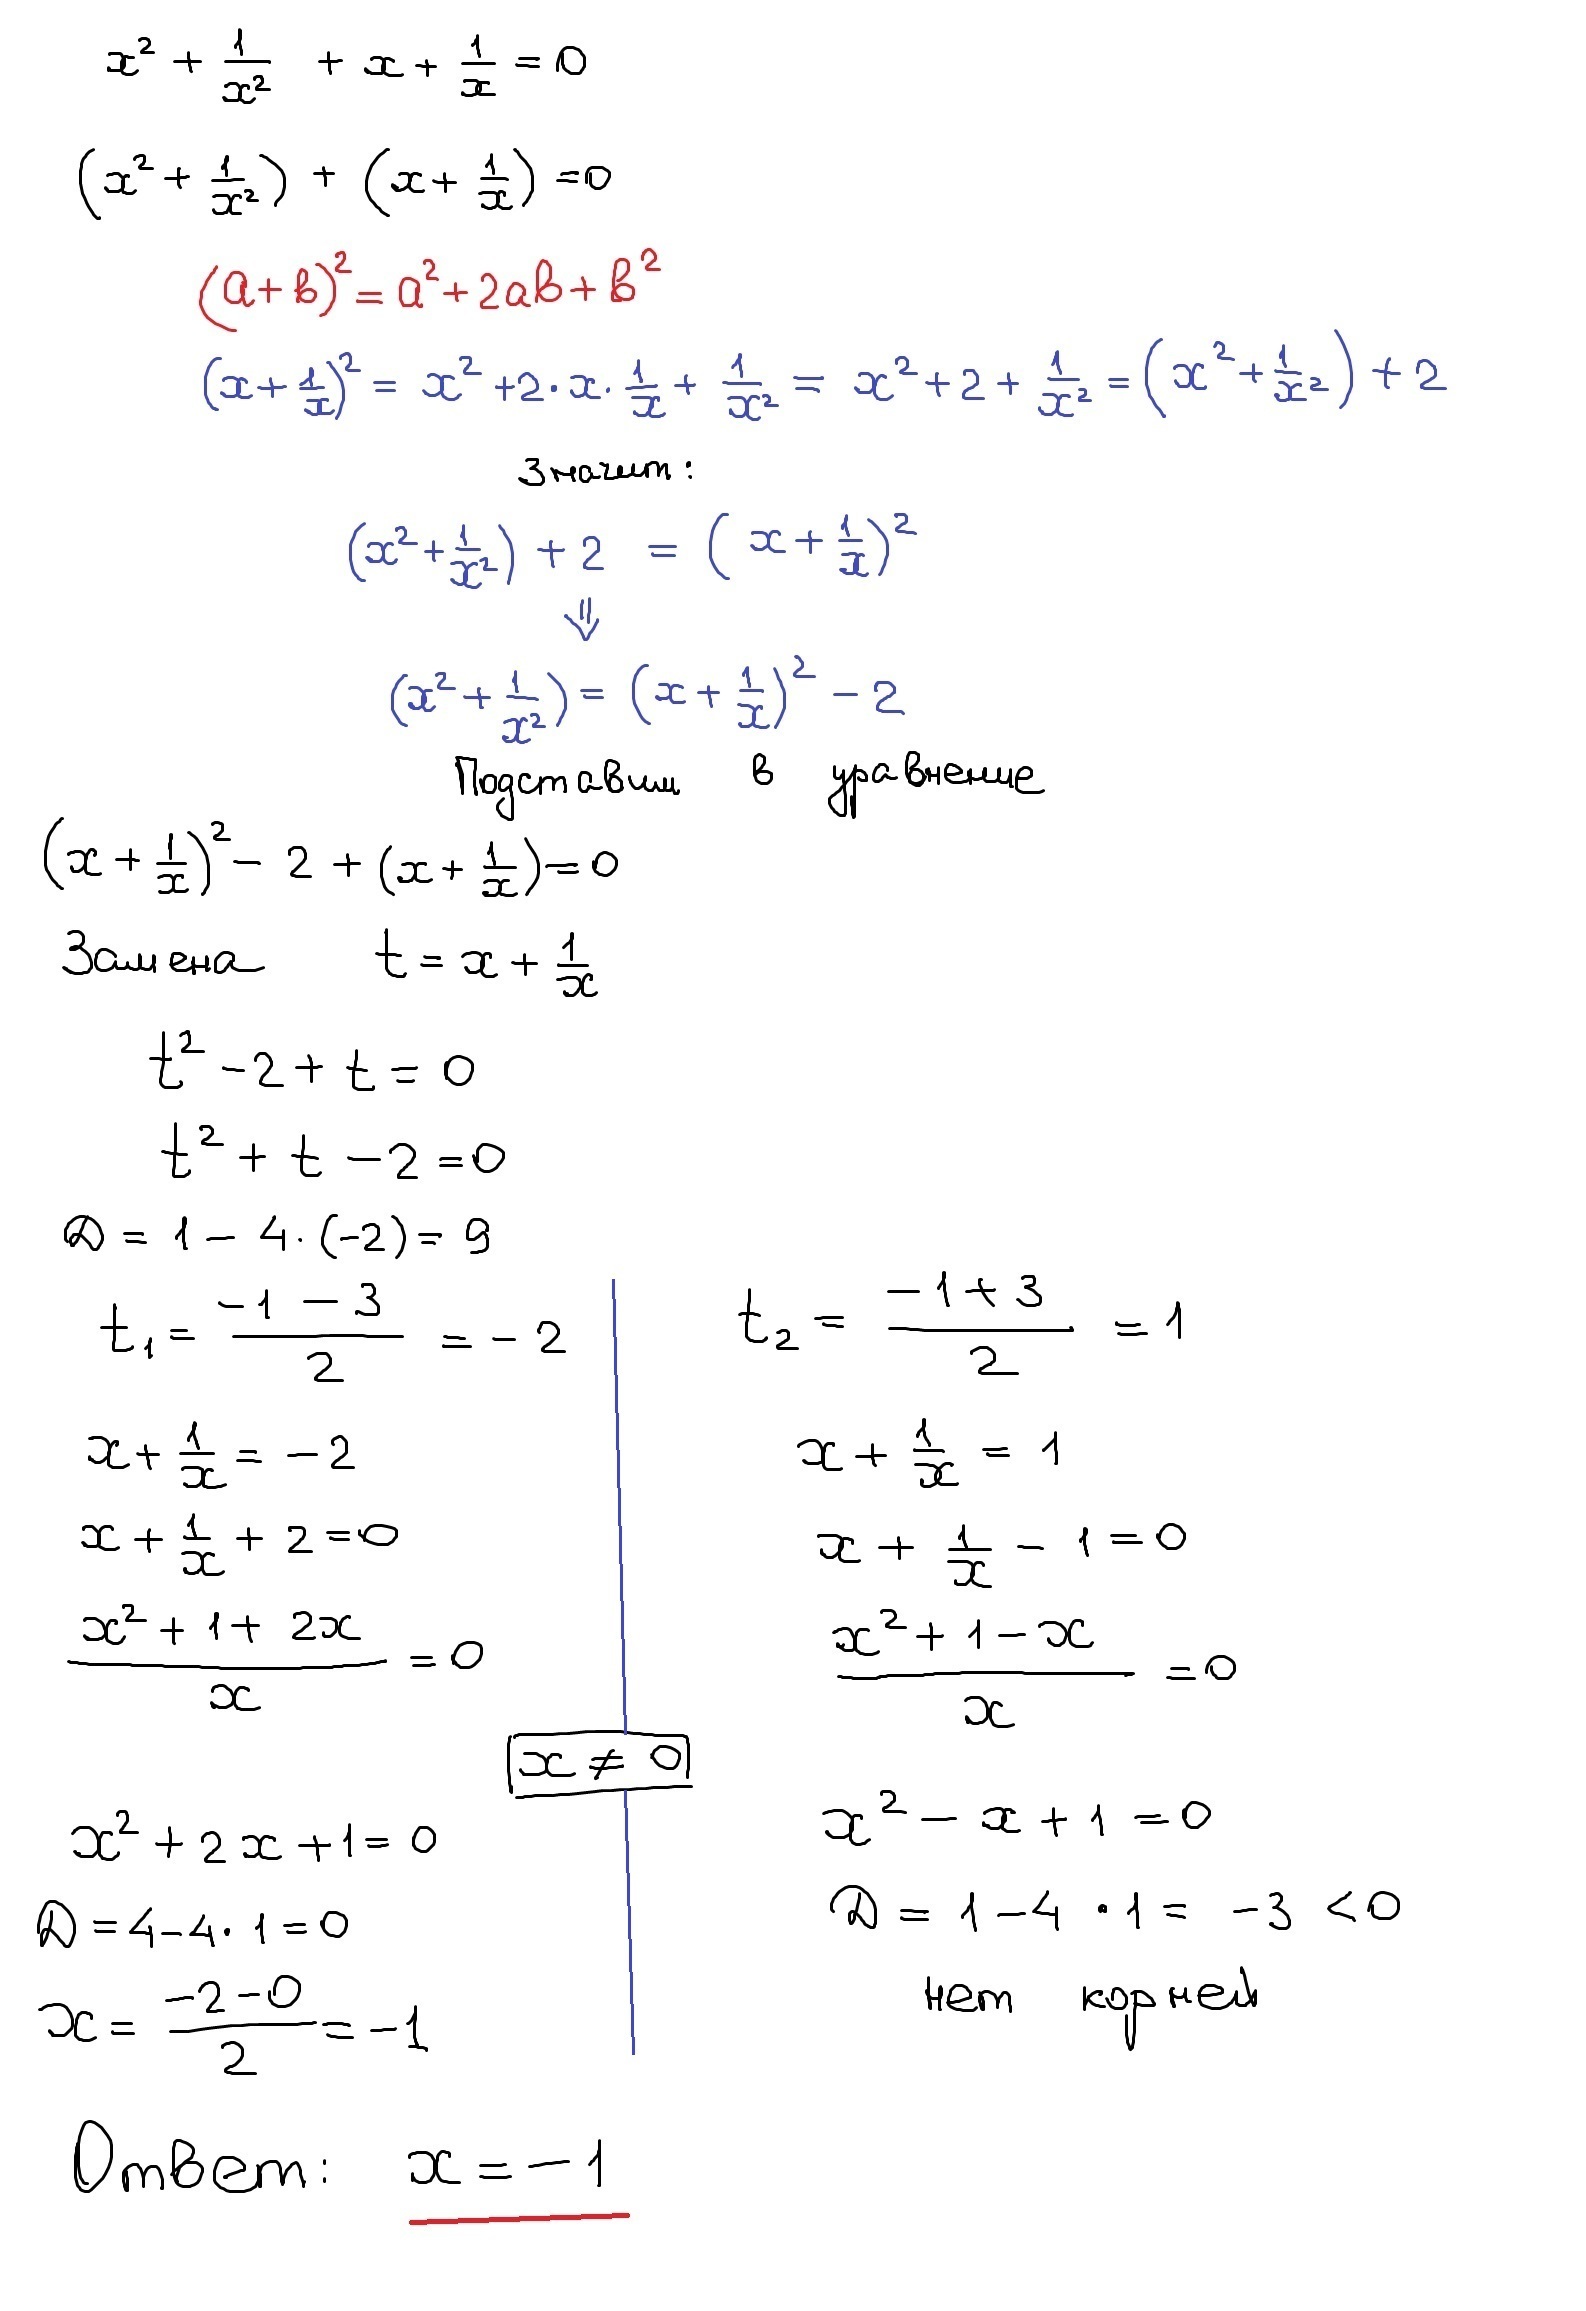 x² + 1/x² + x + 1/x = 0
(x² + 1/x²) + (x + 1/x) = 0
(a+в)² = a² + 2aв + в²
(x + 1/x)² = x² + 2·x·1/x + 1/x² = x² + 2 + 1/x² = (x² + 1/x²) + 2
Значит:
(x² + 1/x²) + 2 = (x + 1/x)²
⇓
(x² + 1/x²) = (x + 1/x)² − 2
Подставим в уравнение
(x + 1/x)² − 2 + (x + 1/x) = 0
Замена t = x + 1/x
t² − 2 + t = 0
t² + t − 2 = 0
D = 1 − 4·(−2) = 9
t₁ = (−1 − 3)/2 = −2
x + 1/x = −2
x + 1/x + 2 = 0
(x² + 1 + 2x)/x = 0
x ≠ 0
x² + 2x + 1 = 0
D = 4 − 4·1 = 0
x = (−2 − 0)/2 = −1
t₂ = (−1 + 3)/2 = 1
x + 1/x = 1
x + 1/x − 1 = 0
(x² + 1 − x)/x = 0
x² − x + 1 = 0
D = 1 − 4·1 = −3 < 0
нет корней
Ответ: x = −1